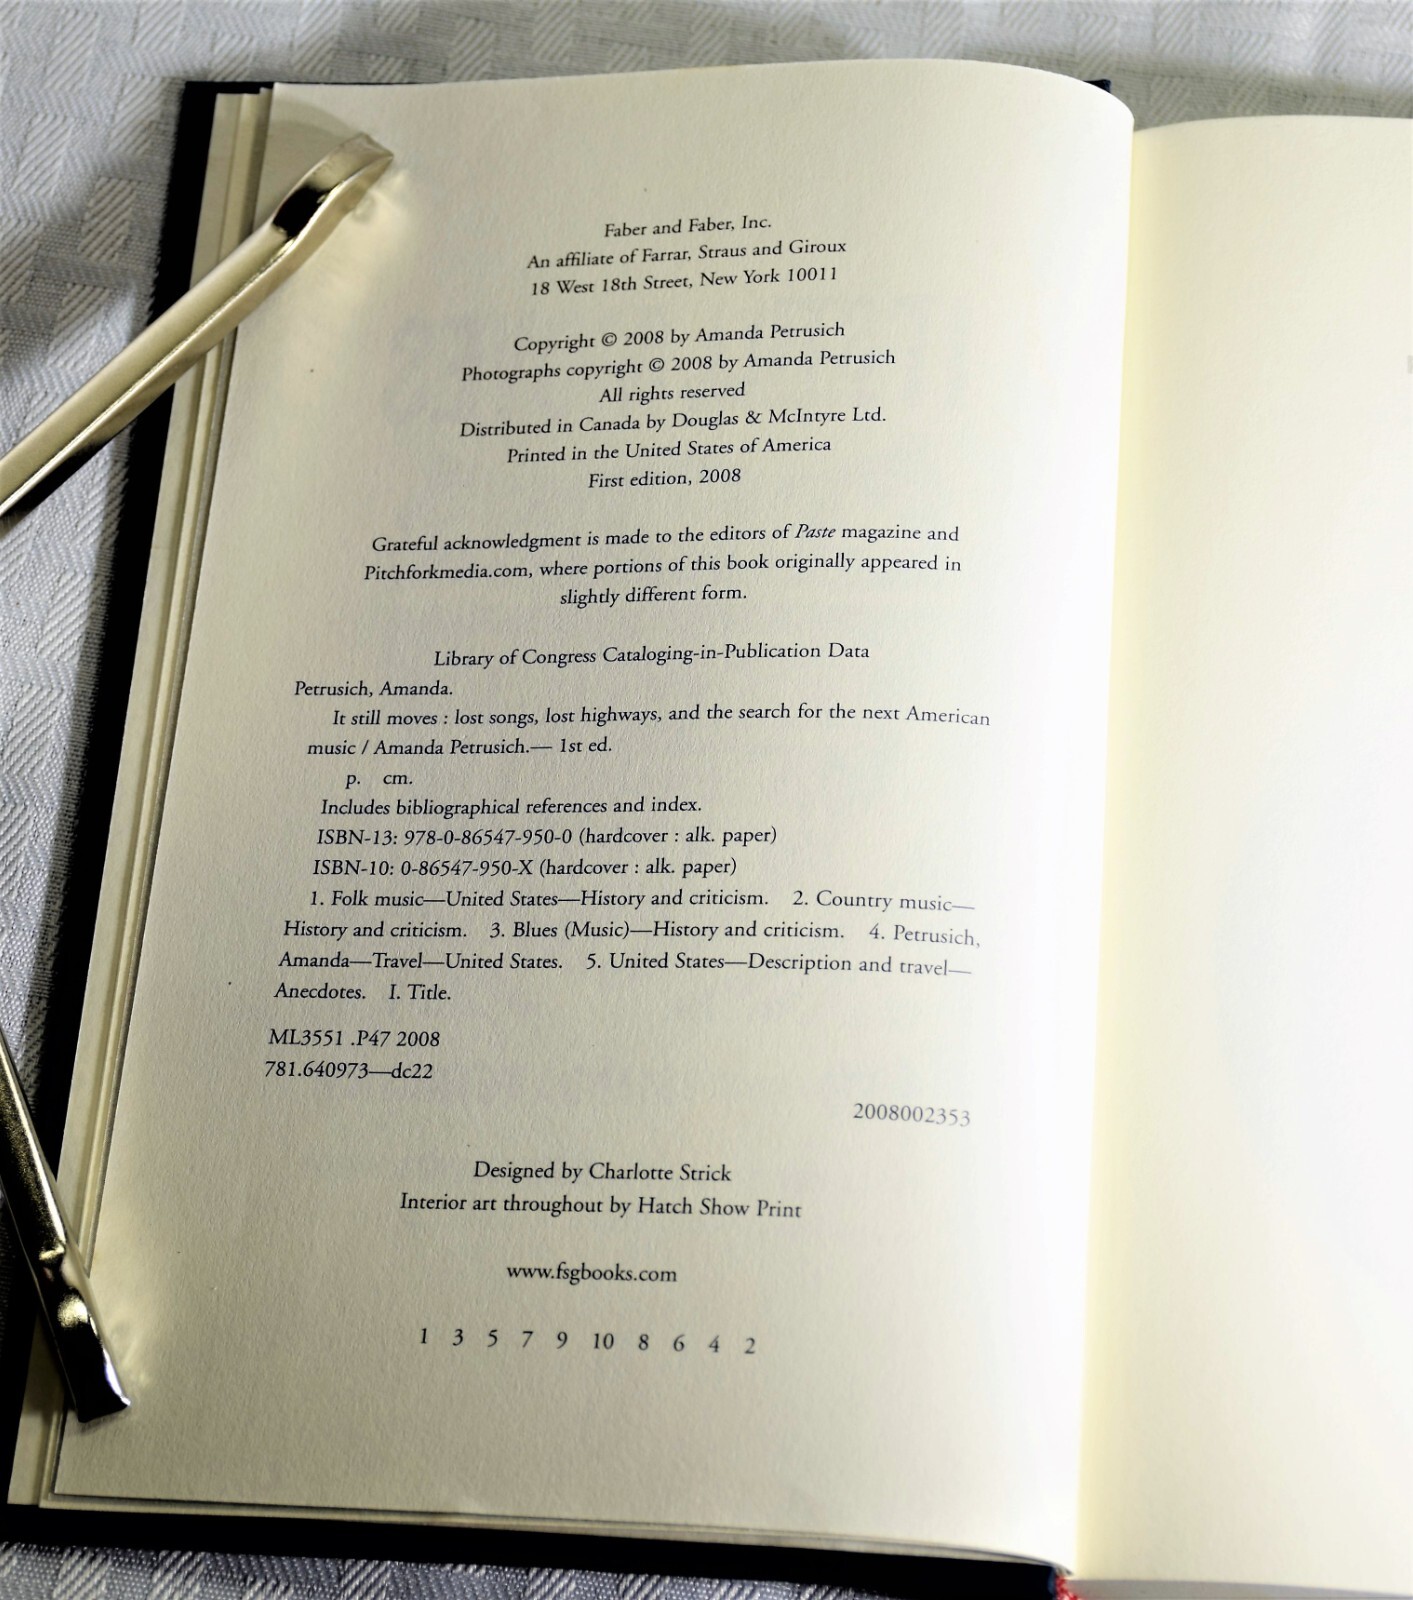 Faber and Faber, Inc.
An affiliate of Farrar, Straus and Giroux
18 West 18th Street, New York 10011
Copyright © 2008 by Amanda Petrusich
Photographs copyright © 2008 by Amanda Petrusich
All rights reserved
Distributed in Canada by Douglas & McIntyre Ltd.
Printed in the United States of America
First edition, 2008
Grateful acknowledgment is made to the editors of Paste magazine and
Pitchforkmedia.com, where portions of this book originally appeared in
slightly different form.
Library of Congress Cataloging-in-Publication Data
Petrusich, Amanda.
It still moves : lost songs, lost highways, and the search for the next American
music / Amanda Petrusich.— 1st ed.
p. cm.
Includes bibliographical references and index.
ISBN-13: 978-0-86547-950-0 (hardcover : alk. paper)
ISBN-10: 0-86547-950-X (hardcover : alk. paper)
1. Folk music—United States—History and criticism. 2. Country music—
History and criticism. 3. Blues (Music)—History and criticism. 4. Petrusich,
Amanda—Travel—United States. 5. United States—Description and travel—
Anecdotes. I. Title.
ML3551 .P47 2008
781.640973—dc22
2008002353
Designed by Charlotte Strick
Interior art throughout by Hatch Show Print
www.fsgbooks.com
1 3 5 7 9 10 8 6 4 2